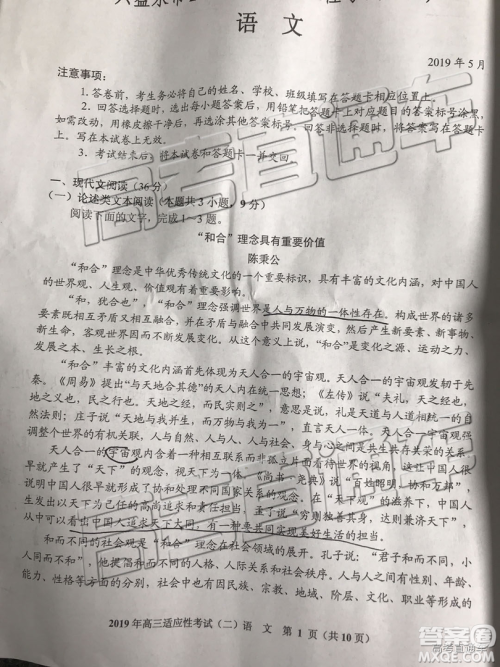 语 文
2019 年 5 月
注意事项：
1. 答卷前，考生务必将自己的姓名、学校、班级填写在答题卡相应位置上。
2. 回答选择题时，选出每小题答案后，用铅笔把答题卡上对应题目的答案标号涂黑，
如需改动，用橡皮擦干净后，再选涂其他答案标号。回答非选择题时，将答案写在答题卡
上。写在本试卷上无效。
3. 考试结束后，将本试卷和答题卡一并交回。
一、现代文阅读（36 分）
（一）论述类文本阅读（本题共 3 小题，9 分）
阅读下面的文字，完成 1～3 题。
“和合”理念具有重要价值
陈秉公
“和合”理念是中华优秀传统文化的一个重要标识，具有丰富的文化内涵，对中国人
的世界观、人生观、价值观有着重要影响。
“和，犹合也”，“和合”理念强调世界是人与万物的一体性存在。构成世界的诸多
要素既相互差异又相互融合，并在融合中共同发展演变，然后产生新要素、新事物、
新生命，客观世界因而不断变化和发展。从这个意义上说，“和合”是变化之源、运动之力、
发展之本、生长之根。
“和合”丰富的文化内涵首先体现为天人合一的宇宙观。天人合一的宇宙观发轫于先
秦。《周易》提出“与天地合其德”的天人内在统一思想；《左传》说“夫礼，
天之经也，地之义也，民之行也。天地之经，而民实则之”，意思是说，礼是天道与人道相通的自
然法则；庄子说“天地与我并生，而万物与我为一”，直言天人一体。天人合一宇宙观强
调整个世界的有机关联，人与自然、人与人、人与社会等都是共生共存共荣的关系。
天人合一的宇宙观内含着一种相互依存、和谐并育看待世界的视角，这让中国人很
早就产生了“天下”的观念，视天下为一体。《尚书·尧典》说“百姓昭明，协和万邦”，
说明中国人很早就形成了协和处理不同国家关系的观念。在“天下观”的滋养下，中国人
生发出以天下为己任的高尚追求和责任担当。孟子说“穷则独善其身，达则兼济天下”，
可以看出中国人追求天下大同，有一种要共同实现美好生活的担当。
和而不同的社会观是“和合”理念在社会领域的展开。孔子说：“君子和而不同，小
人同而不和”，他提倡和而不同的人际关系和社会秩序。人与人之间存在着个性、年龄、
能力、性格等方面的分别，社会中也有因民族、宗教、地域、文化、职业等形成的
2019 年高三适应性考试（二）语 文 第 1 页（共 10 页）
高考直通车
答案圈